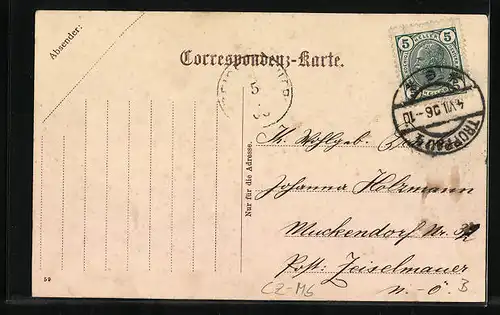 Absender:
Correspondenz-Karte.
5 5
4.VII.06-10
TROPPAU
5
Nur für die Adresse.
Wohlgeb.
Johanna Holzmann
Muckendorf Nr. 32
Post: Zeiselmauer
N.-Ö.
CZ-M6
B
59